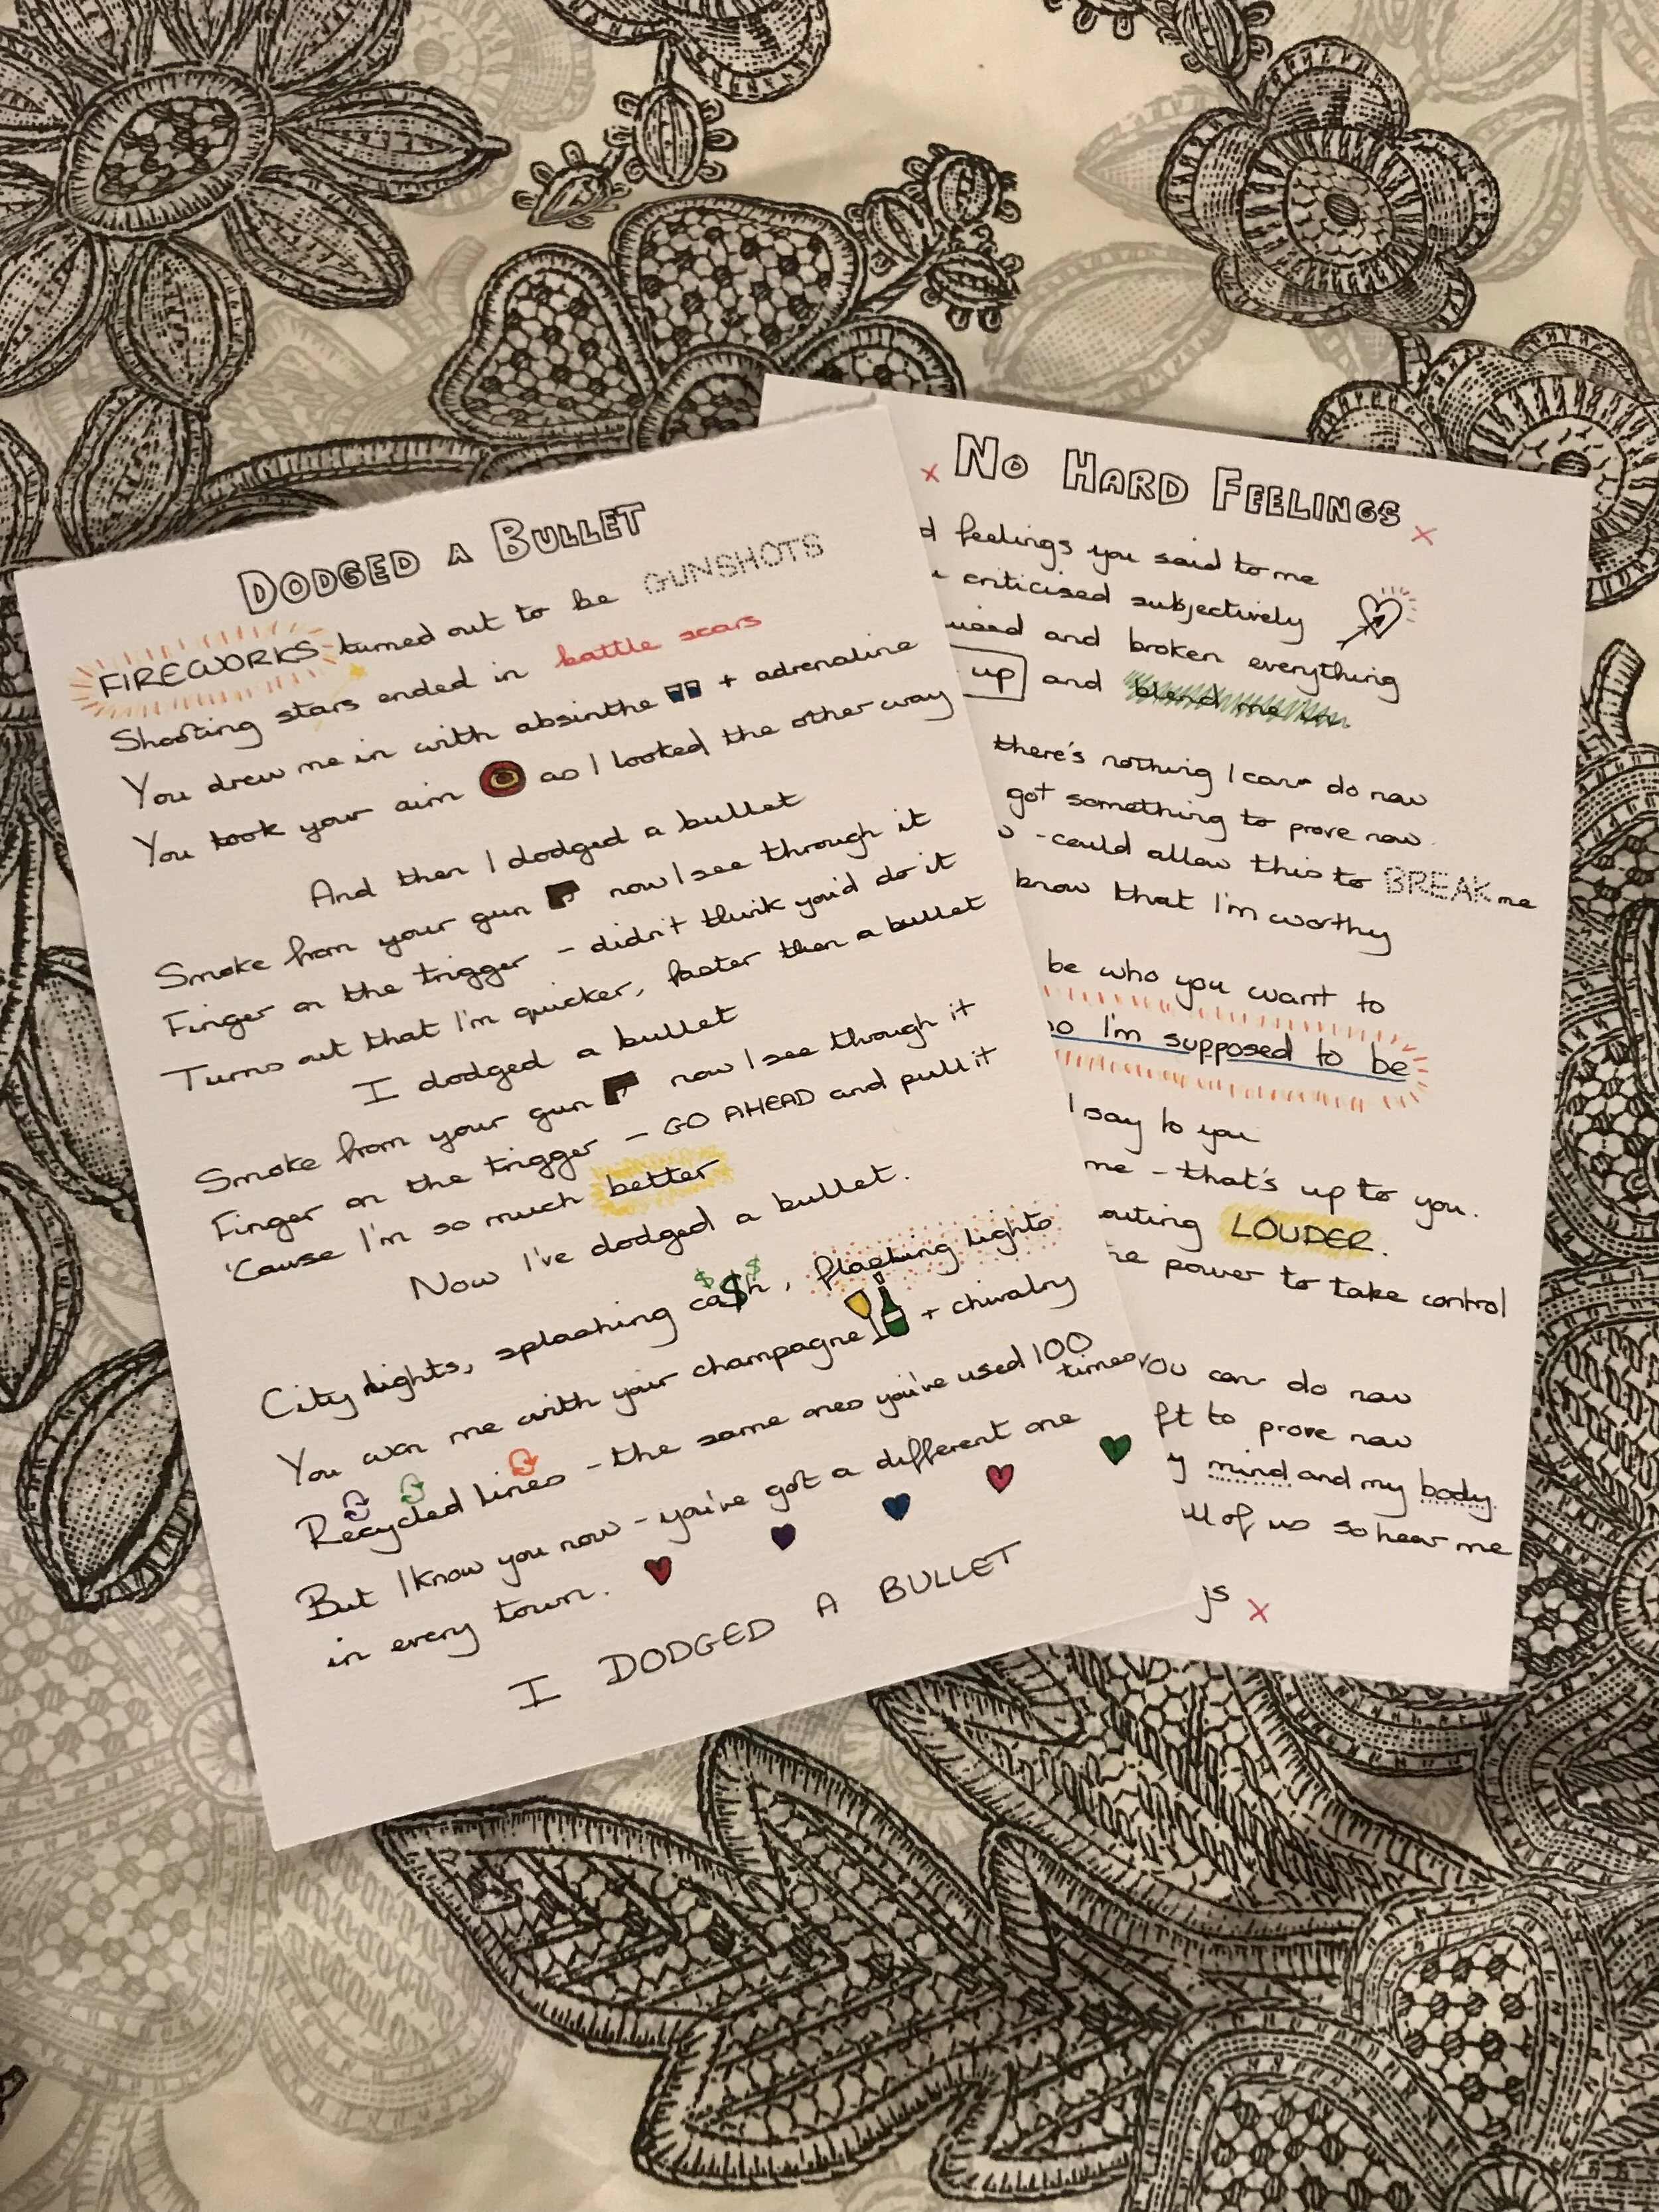 DODGED A BULLET
FIREWORKS turned out to be GUNSHOTS
Shooting stars ended in battle scars
You drew me in with absinthe + adrenaline
You took your aim as I looked the other way
And then I dodged a bullet
Smoke from your gun now I see through it
Finger on the trigger - didn't think you'd do it
Turns out that I'm quicker, faster than a bullet
I dodged a bullet
Smoke from your gun now I see through it
Finger on the trigger - GO AHEAD and pull it
'Cause I'm so much better
Now I've dodged a bullet.
City lights, splashing ca$h, flashing lights
You won me with your champagne + chivalry
Recycled lines - the same ones you've used 100
times
But I know you now - you've got a different one
in every town.
I DODGED A BULLET
x NO HARD FEELINGS x
d feelings you said to me
criticised subjectively
and broken everything
up and blend me in
there's nothing I can do now
got something to prove now.
- could allow this to BREAK me
know that I'm worthy
be who you want to
o I'm supposed to be
I say to you
me - that's up to you.
outing LOUDER.
he power to take control
you can do now
ft to prove now
y mind and my body.
all of us so hear me
js x